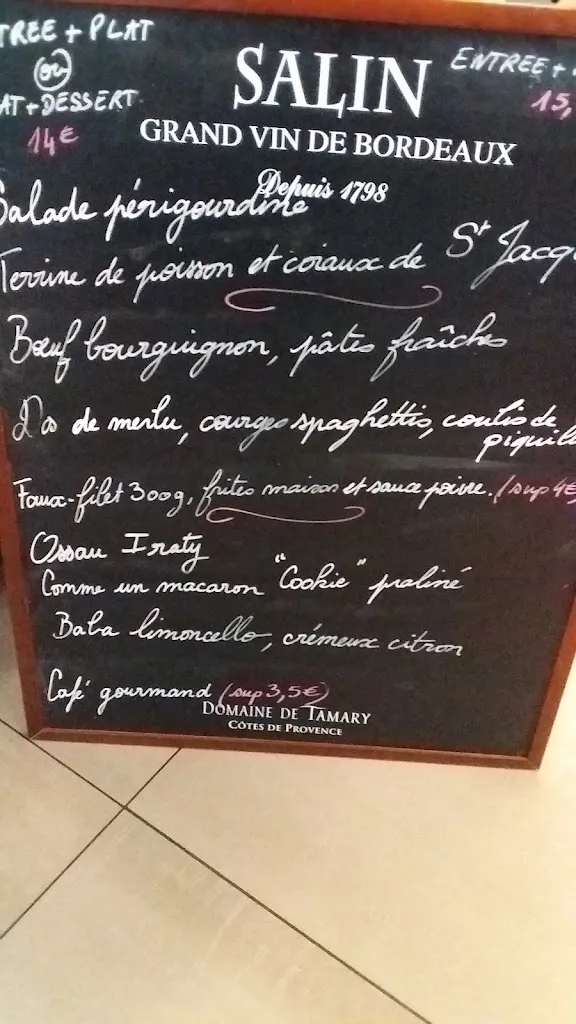 TREE + PLAT
ou
AT + DESSERT
14€
ENTREE +
15,
SALIN
GRAND VIN DE BORDEAUX
Depuis 1798
Salade périgourdine
Terrine de poisson et coraux de St Jacq
Bœuf bourguignon, pâtes fraîches
Dos de merlu, courges spaghettis, coulis de
piquill
Faux-filet 300g, frites maison et sauce poivre. (sup 4€)
Ossau Iraty
Comme un macaron "Cookie" praliné
Baba limoncello, crémeux citron
Café gourmand (sup 3,5€)
DOMAINE DE TAMARY
CÔTES DE PROVENCE